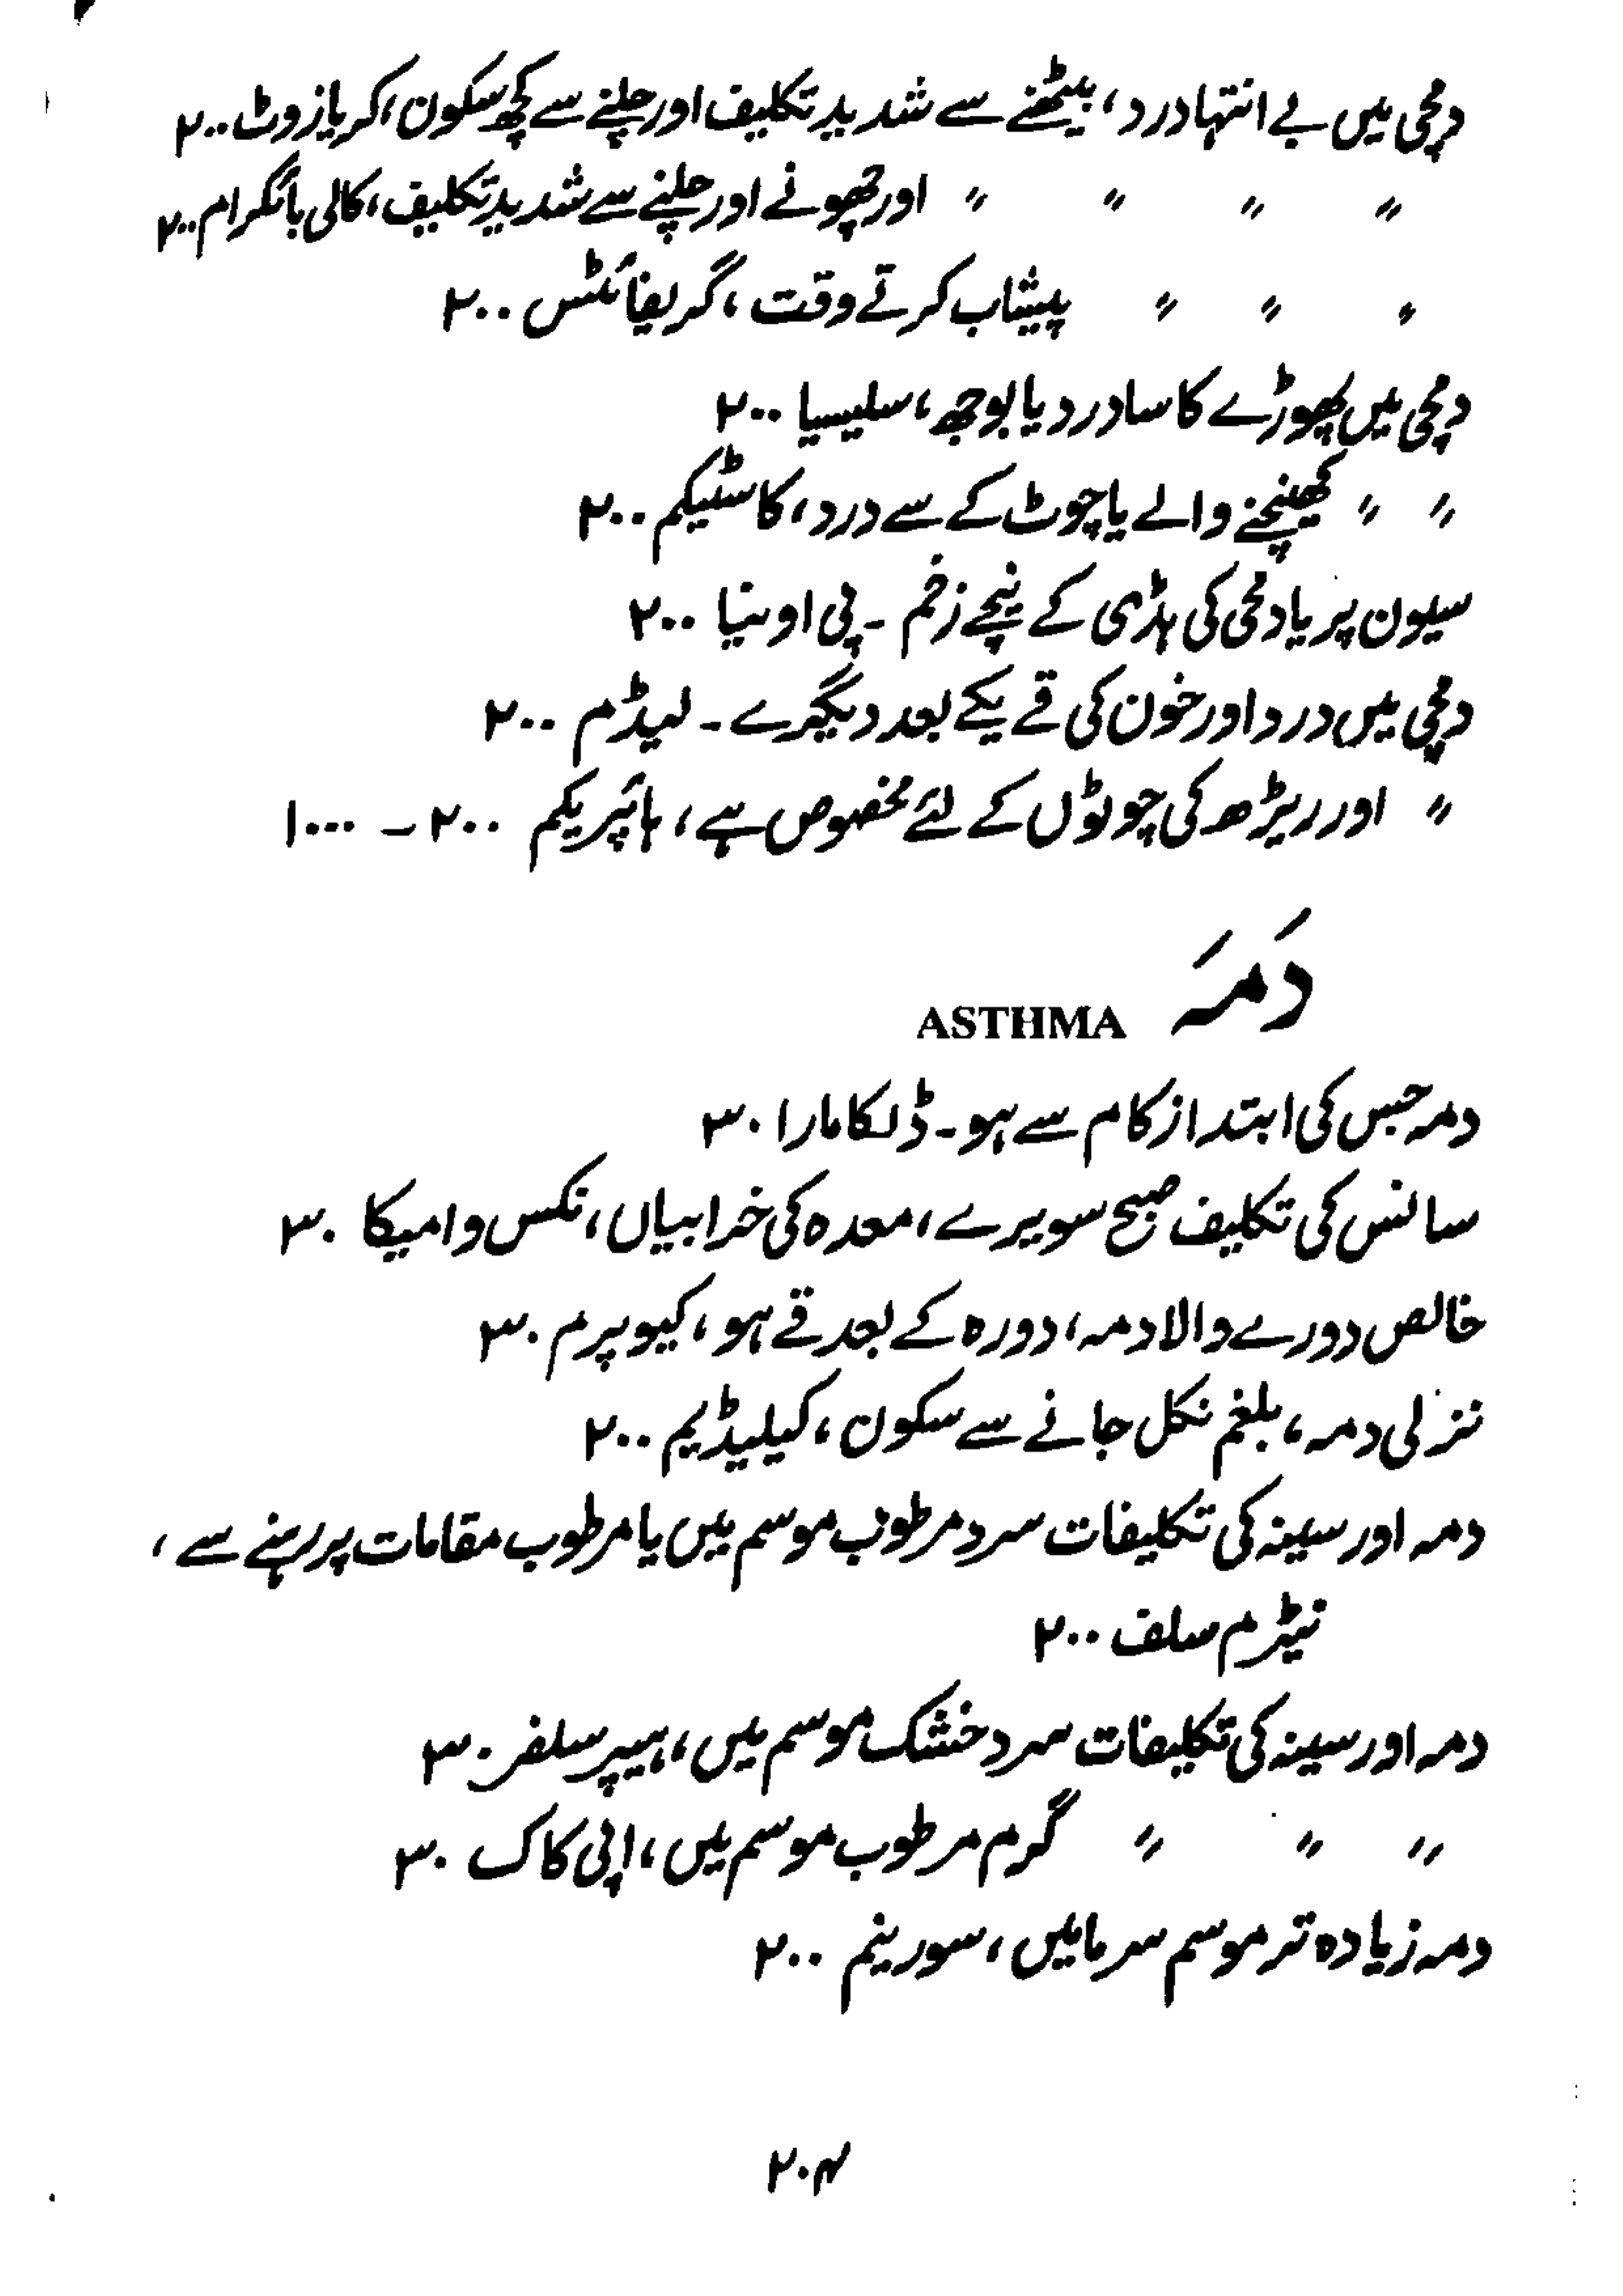 دمچی میں بے انتہا درد، بیٹھنے سے شدید تکلیف اور چلنے سے کچھ سکون، کریازوٹ ۲۰۰
〃 〃 〃 〃 اور چھونے اور چلنے سے شدید تکلیف، کالی بائگرام ۲۰۰
〃 〃 〃 پیشاب کرتے وقت، گریفائٹس ۲۰۰
دمچی میں پھوڑے کا سا درد یا بوجھ، سلیسیا ۲۰۰
〃 〃 کھینچنے والے یا چوٹ کے سے درد، کاسٹیکم ۲۰۰
سیون پر یا دمچی کی ہڈی کے نیچے زخم - پی اونیا ۲۰۰
دمچی میں درد اور خون کی قے یکے بعد دیگرے - لیڈم ۲۰۰
〃 اور ریڑھ کی چوٹوں کے لئے مخصوص ہے، ہائپریکم ۲۰۰ - ۱۰۰۰
دَمَہ ASTHMA
دمہ جس کی ابتدا زکام سے ہو - ڈلکامارا ۳۰
سانس کی تکلیف صبح سویرے، معدہ کی خرابیاں، نکس وامیکا ۳۰
خالص دورے والا دمہ، دورہ کے بعد قے ہو، کیوپرم ۳۰
نزلی دمہ، بلغم نکل جانے سے سکون، کیلیڈیم ۲۰۰
دمہ اور سینہ کی تکلیفات سرد مرطوب موسم میں یا مرطوب مقامات پر رہنے سے،
نیٹرم سلف ۲۰۰
دمہ اور سینہ کی تکلیفات سرد خشک موسم میں، ہیپر سلفر ۳۰
〃 〃 〃 گرم مرطوب موسم میں، اپی کاک ۳۰
دمہ زیادہ تر موسم سرما میں، سورینم ۲۰۰
۲۰۴